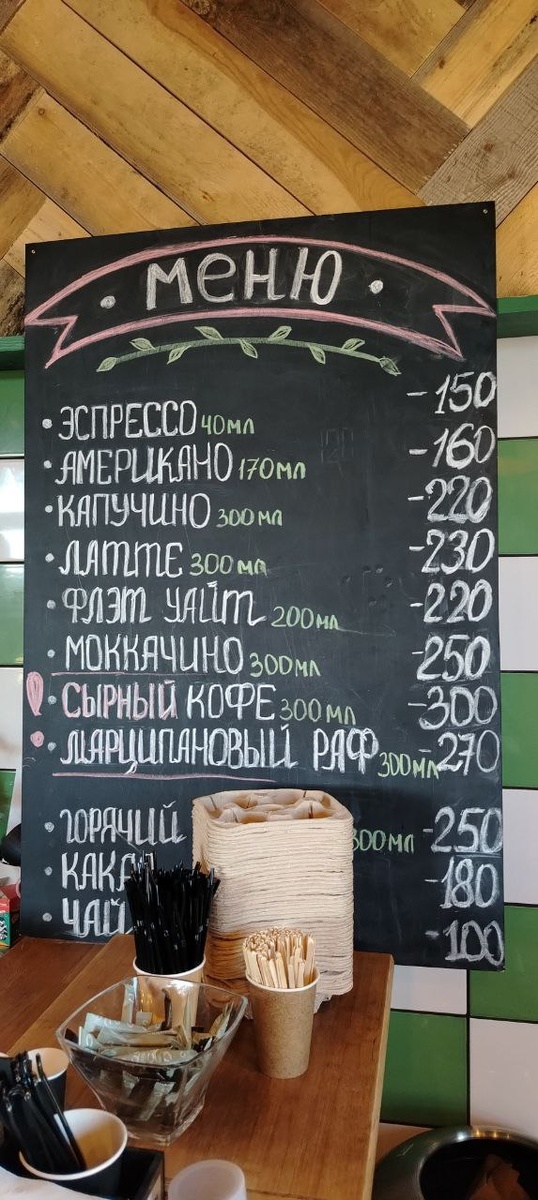 • Меню •
• ЭСПРЕССО 40мл -150
• АМЕРИКАНО 170мл -160
• КАПУЧИНО 300мл -220
• ЛАТТЕ 300мл -230
• ФЛЭТ УАЙТ 200мл -220
• МОККАЧИНО 300мл -250
• СЫРНЫЙ КОФЕ 300мл -300
• МАРЦИПАНОВЫЙ РАФ 300мл -270
• ГОРЯЧИЙ 300мл -250
• КАКА -180
• ЧАЙ -100